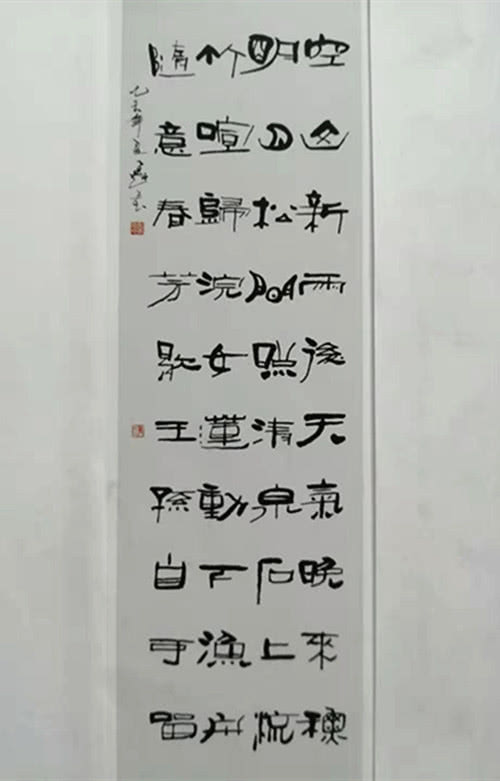 空山新雨後天氣晚來秋
明月松間照清泉石上流
竹喧歸浣女蓮動下漁舟
隨意春芳歇王孫自可留
亥年夏